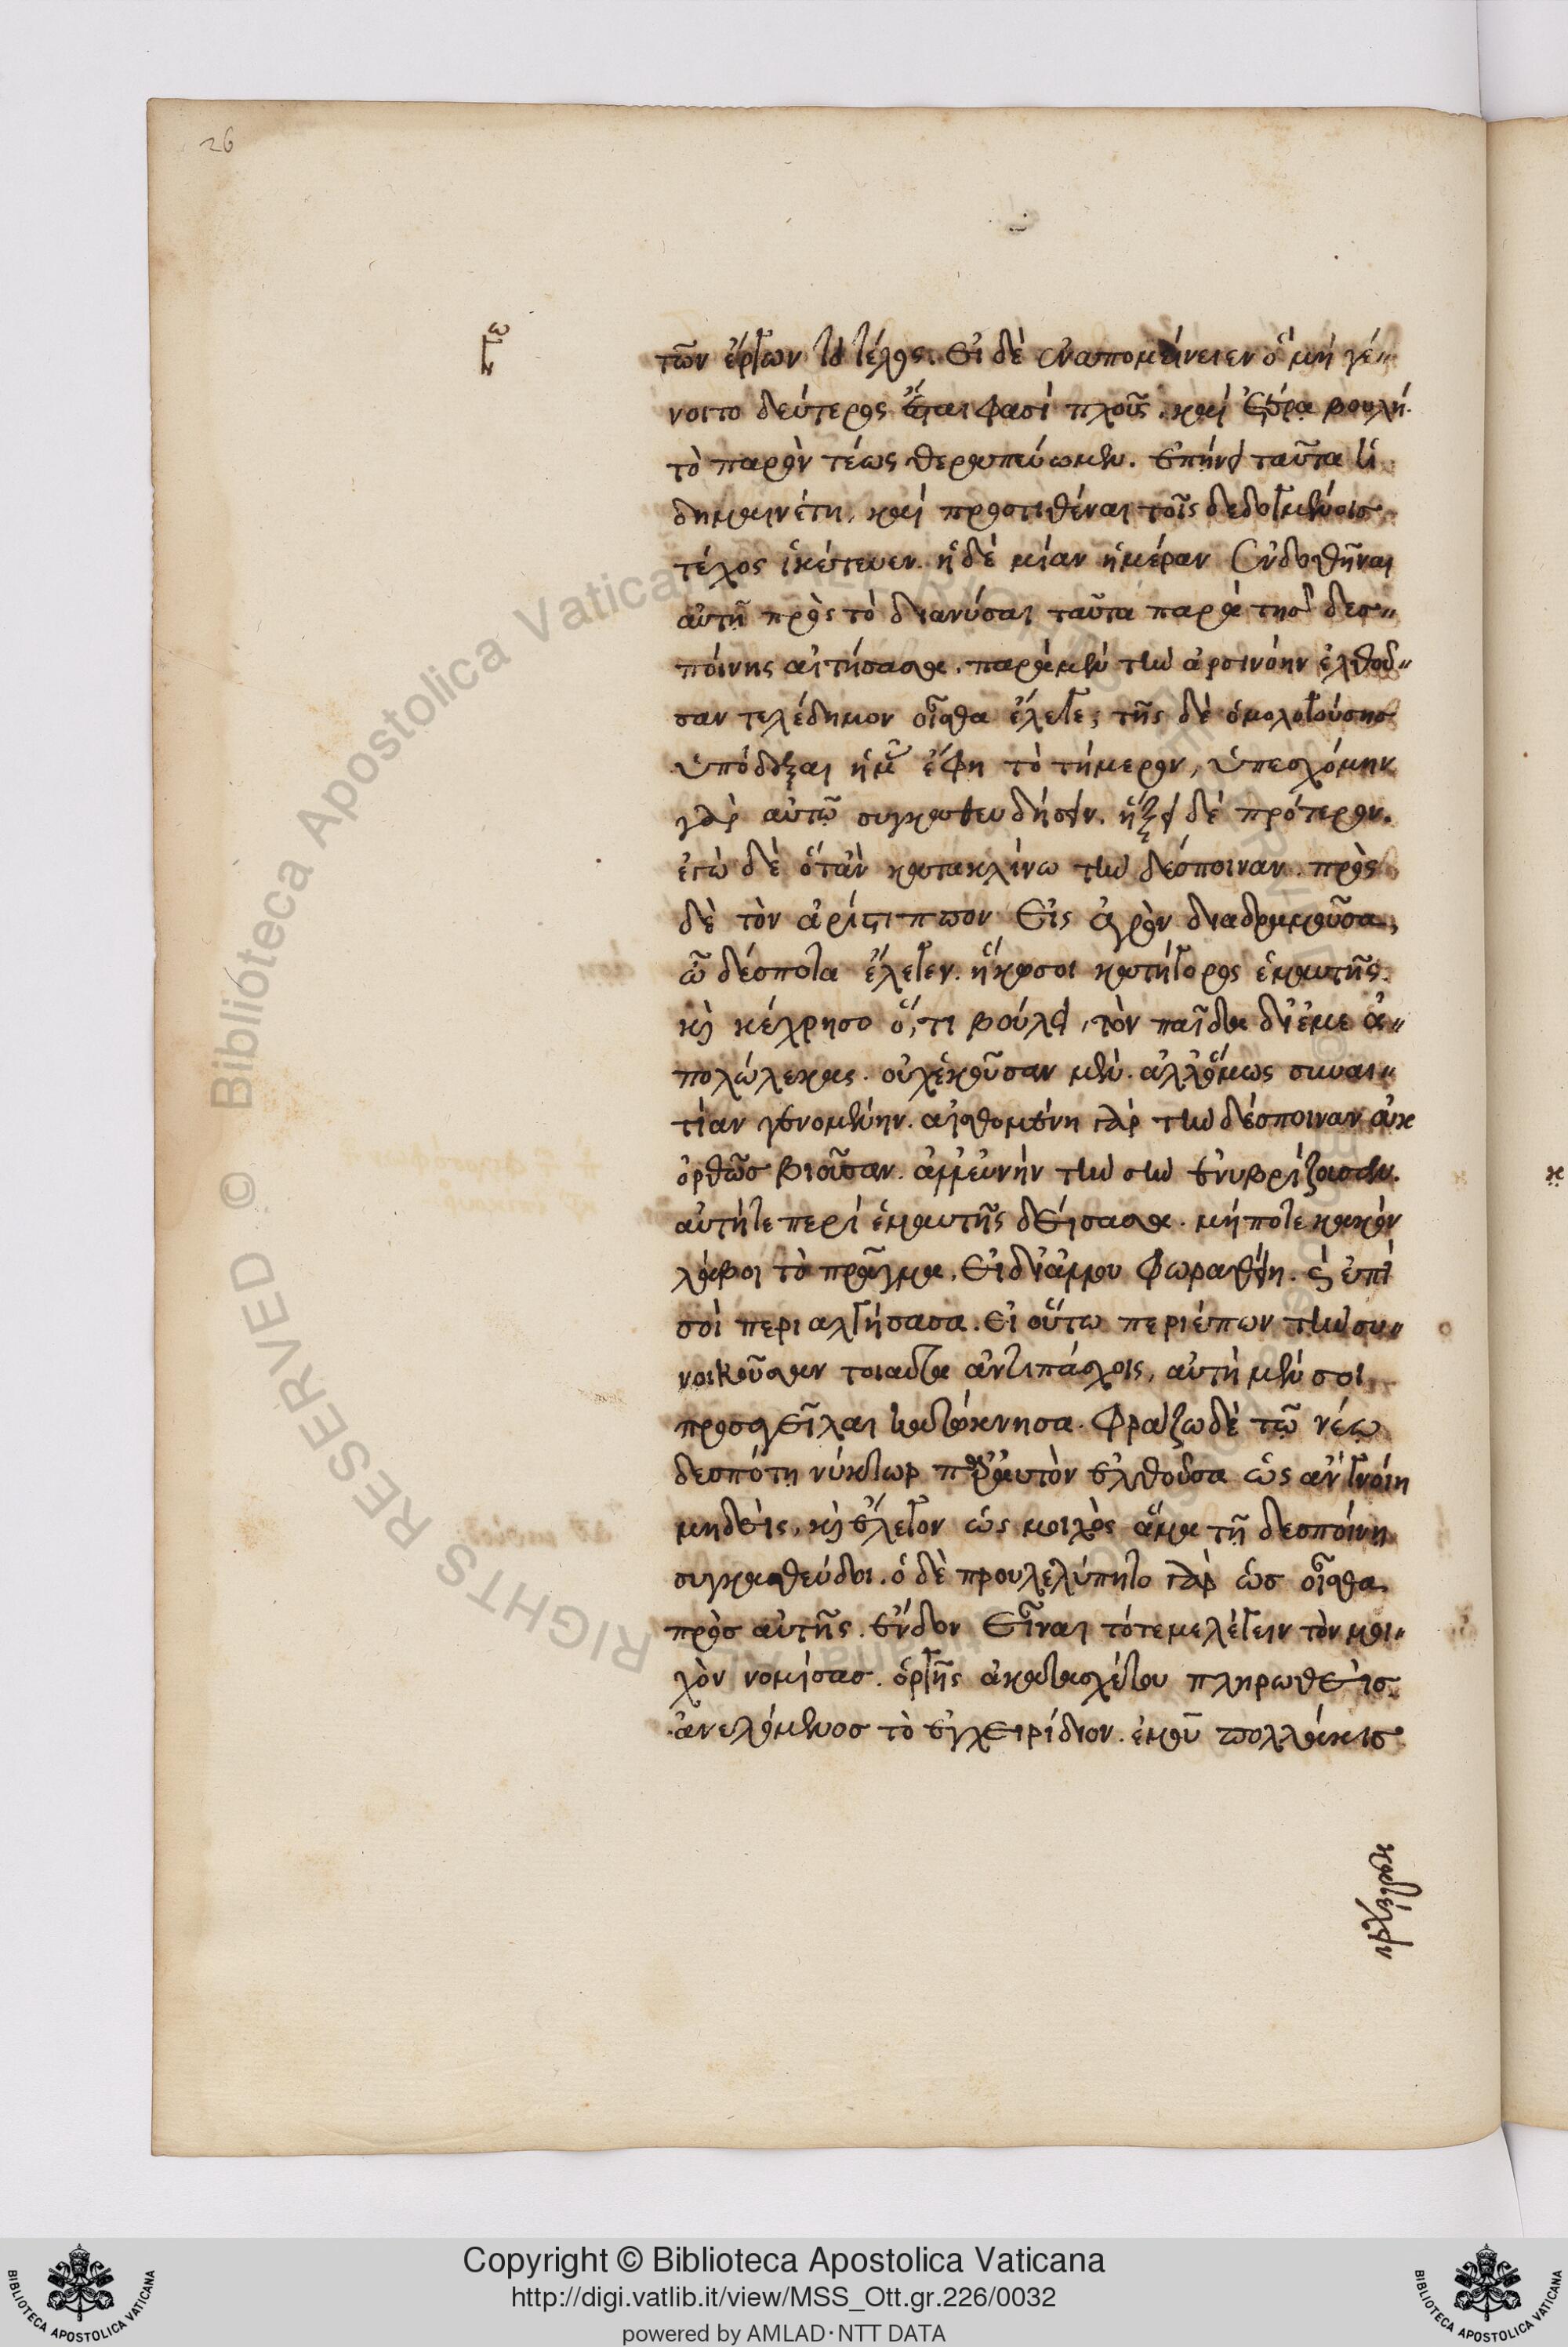 26
τῶν ἔργων τὸ τέλος. εἰ δὲ ἐναπομείνειεν ὃ μὴ γέ„
νοιτο δεύτερος ἔσται φασὶ πλοῦς. καὶ ἑτέρα βουλή.
τὸ παρὸν τέως θεραπεύωμεν. ἐπήνει ταῦτα ἡ
δημαινέτη. καὶ προστιθέναι τοῖς δεδογμένοις
τέλος ἱκέτευεν. ἡ δὲ μίαν ἡμέραν ἐνδοθῆναι
αὐτῇ πρὸς τὸ διανύσαι ταῦτα παρὰ τῆς δεσ„
ποίνης αἰτήσασα. παρὰ μὲν τὴν ἀρσινόην ἐλθοῦ„
σαν τελέδημον οἶσθα ἔλεγε; τῆς δὲ ὁμολογούσης
ὑπόδεξαι ἡμᾶς ἔφη τὸ τήμερον, ὑπεσχόμην
γὰρ αὐτῷ συγκαθευδήσειν. ἥξει δὲ πρότερον.
ἐγὼ δὲ ὅταν κατακλίνω τὴν δέσποιναν. πρὸς
δὲ τὸν ἀρίστιππον εἰς ἀγρὸν διαδραμοῦσα,
ὦ δέσποτα ἔλεγεν. ἥκω σοι κατήγορος ἐμαυτῆς.
κὶ κέχρησο ὅ,τι βούλει, τὸν παῖδα δι ἐμὲ ἀ„
πολώλεκας. οὐχ ἑκοῦσαν μὲν. ἀλλ ὅμως συναι„
τίαν γενομένην. αἰσθομένη γὰρ τὴν δέσποιναν οὐκ
ὀρθῶς βιοῦσαν. ἀλλ εὐνὴν τὴν σὴν ἐνυβρίζουσαν.
αὐτή τε περὶ ἐμαυτῆς δείσασα. μή ποτε κακὸν
λάβοι τὸ πρᾶγμα. εἰ δι ἄλλου φωραθείη. κ ἐπὶ
σοὶ περιαλγήσασα. εἰ οὕτω περιέπων τὴν συ„
νοικοῦσαν τοιαῦτα ἀντιπάσχοις, αὐτὴ μὲν σοι
προσαγγεῖλαι κατώκνησα. φράζω δὲ τῷ νέῳ
δεσπότῃ νύκτωρ παρ αὐτὸν ἐλθοῦσα ὡς ἂν γνοίη
μηδείς, κὶ ἔλεγον ὡς μοιχὸς ἅμα τῇ δεσποίνῃ
συγκαθεύδοι. ὁ δὲ προυλελύπητο γὰρ ὡς οἶσθα
πρὸς αὐτῆς. ἔνδον εἶναι τότε με λέγειν τὸν μοι„
χὸν νομίσας. ὀργῆς ἀκατασχέτου πληρωθεὶς
ἀνελόμενος τὸ ἐγχειρίδιον. ἐμοῦ πολλάκις
κατέχειν
Copyright © Biblioteca Apostolica Vaticana
http://digi.vatlib.it/view/MSS_Ott.gr.226/0032
powered by AMLAD·NTT DATA